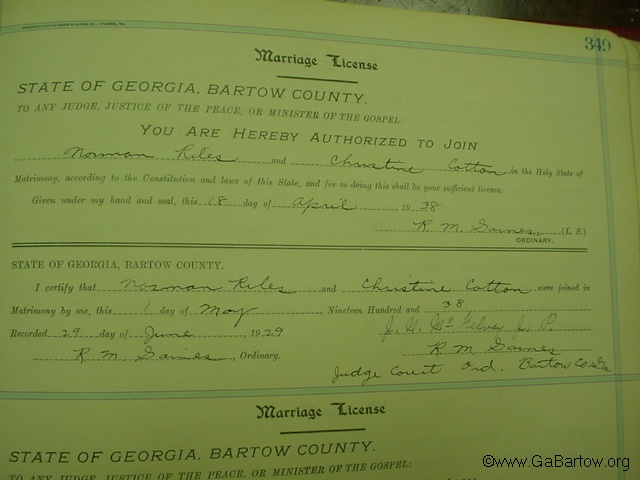 349
Marriage License
STATE OF GEORGIA, BARTOW COUNTY.
TO ANY JUDGE, JUSTICE OF THE PEACE, OR MINISTER OF THE GOSPEL:
YOU ARE HEREBY AUTHORIZED TO JOIN
Norman Riles and Christine Cotton in the Holy State of
Matrimony, according to the Constitution and laws of this State, and for so doing this shall be your sufficient license.
Given under my hand and seal, this 18 day of April, 1938
R. M. Gaines (L. S.)
ORDINARY.
STATE OF GEORGIA, BARTOW COUNTY.
I certify that Norman Riles and Christine Cotton were joined in
Matrimony by me, this 1 day of May, Nineteen Hundred and 38
Recorded 29 day of June, 1929 J. P.
R. M. Gaines, Ordinary. R. M. Gaines
Judge Court Ord. Bartow Co Ga
Marriage License
STATE OF GEORGIA, BARTOW COUNTY.
TO ANY JUDGE, JUSTICE OF THE PEACE, OR MINISTER OF THE GOSPEL:
©www.GaBartow.org